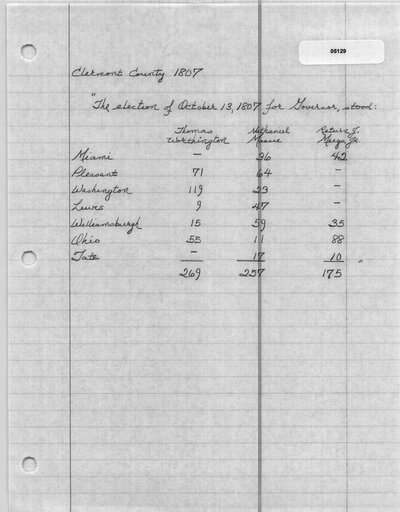 05129
Clermont County 1807
"The election of October 13, 1807 for Governor, stood:
Thomas Worthington Nathaniel Massie Return J. Meigs Jr.
Miami — 36 42
Pleasant 71 64 —
Washington 119 23 —
Lewis 9 47 —
Williamsburgh 15 59 35
Ohio 55 11 88
Tate — 17 10
269 257 175 "